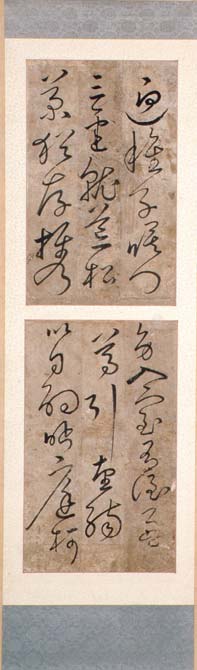 迎稚子候門
三逕就荒松
菊猶存携
幼入室有酒盈
尊引壺觴
以自酌眄庭柯